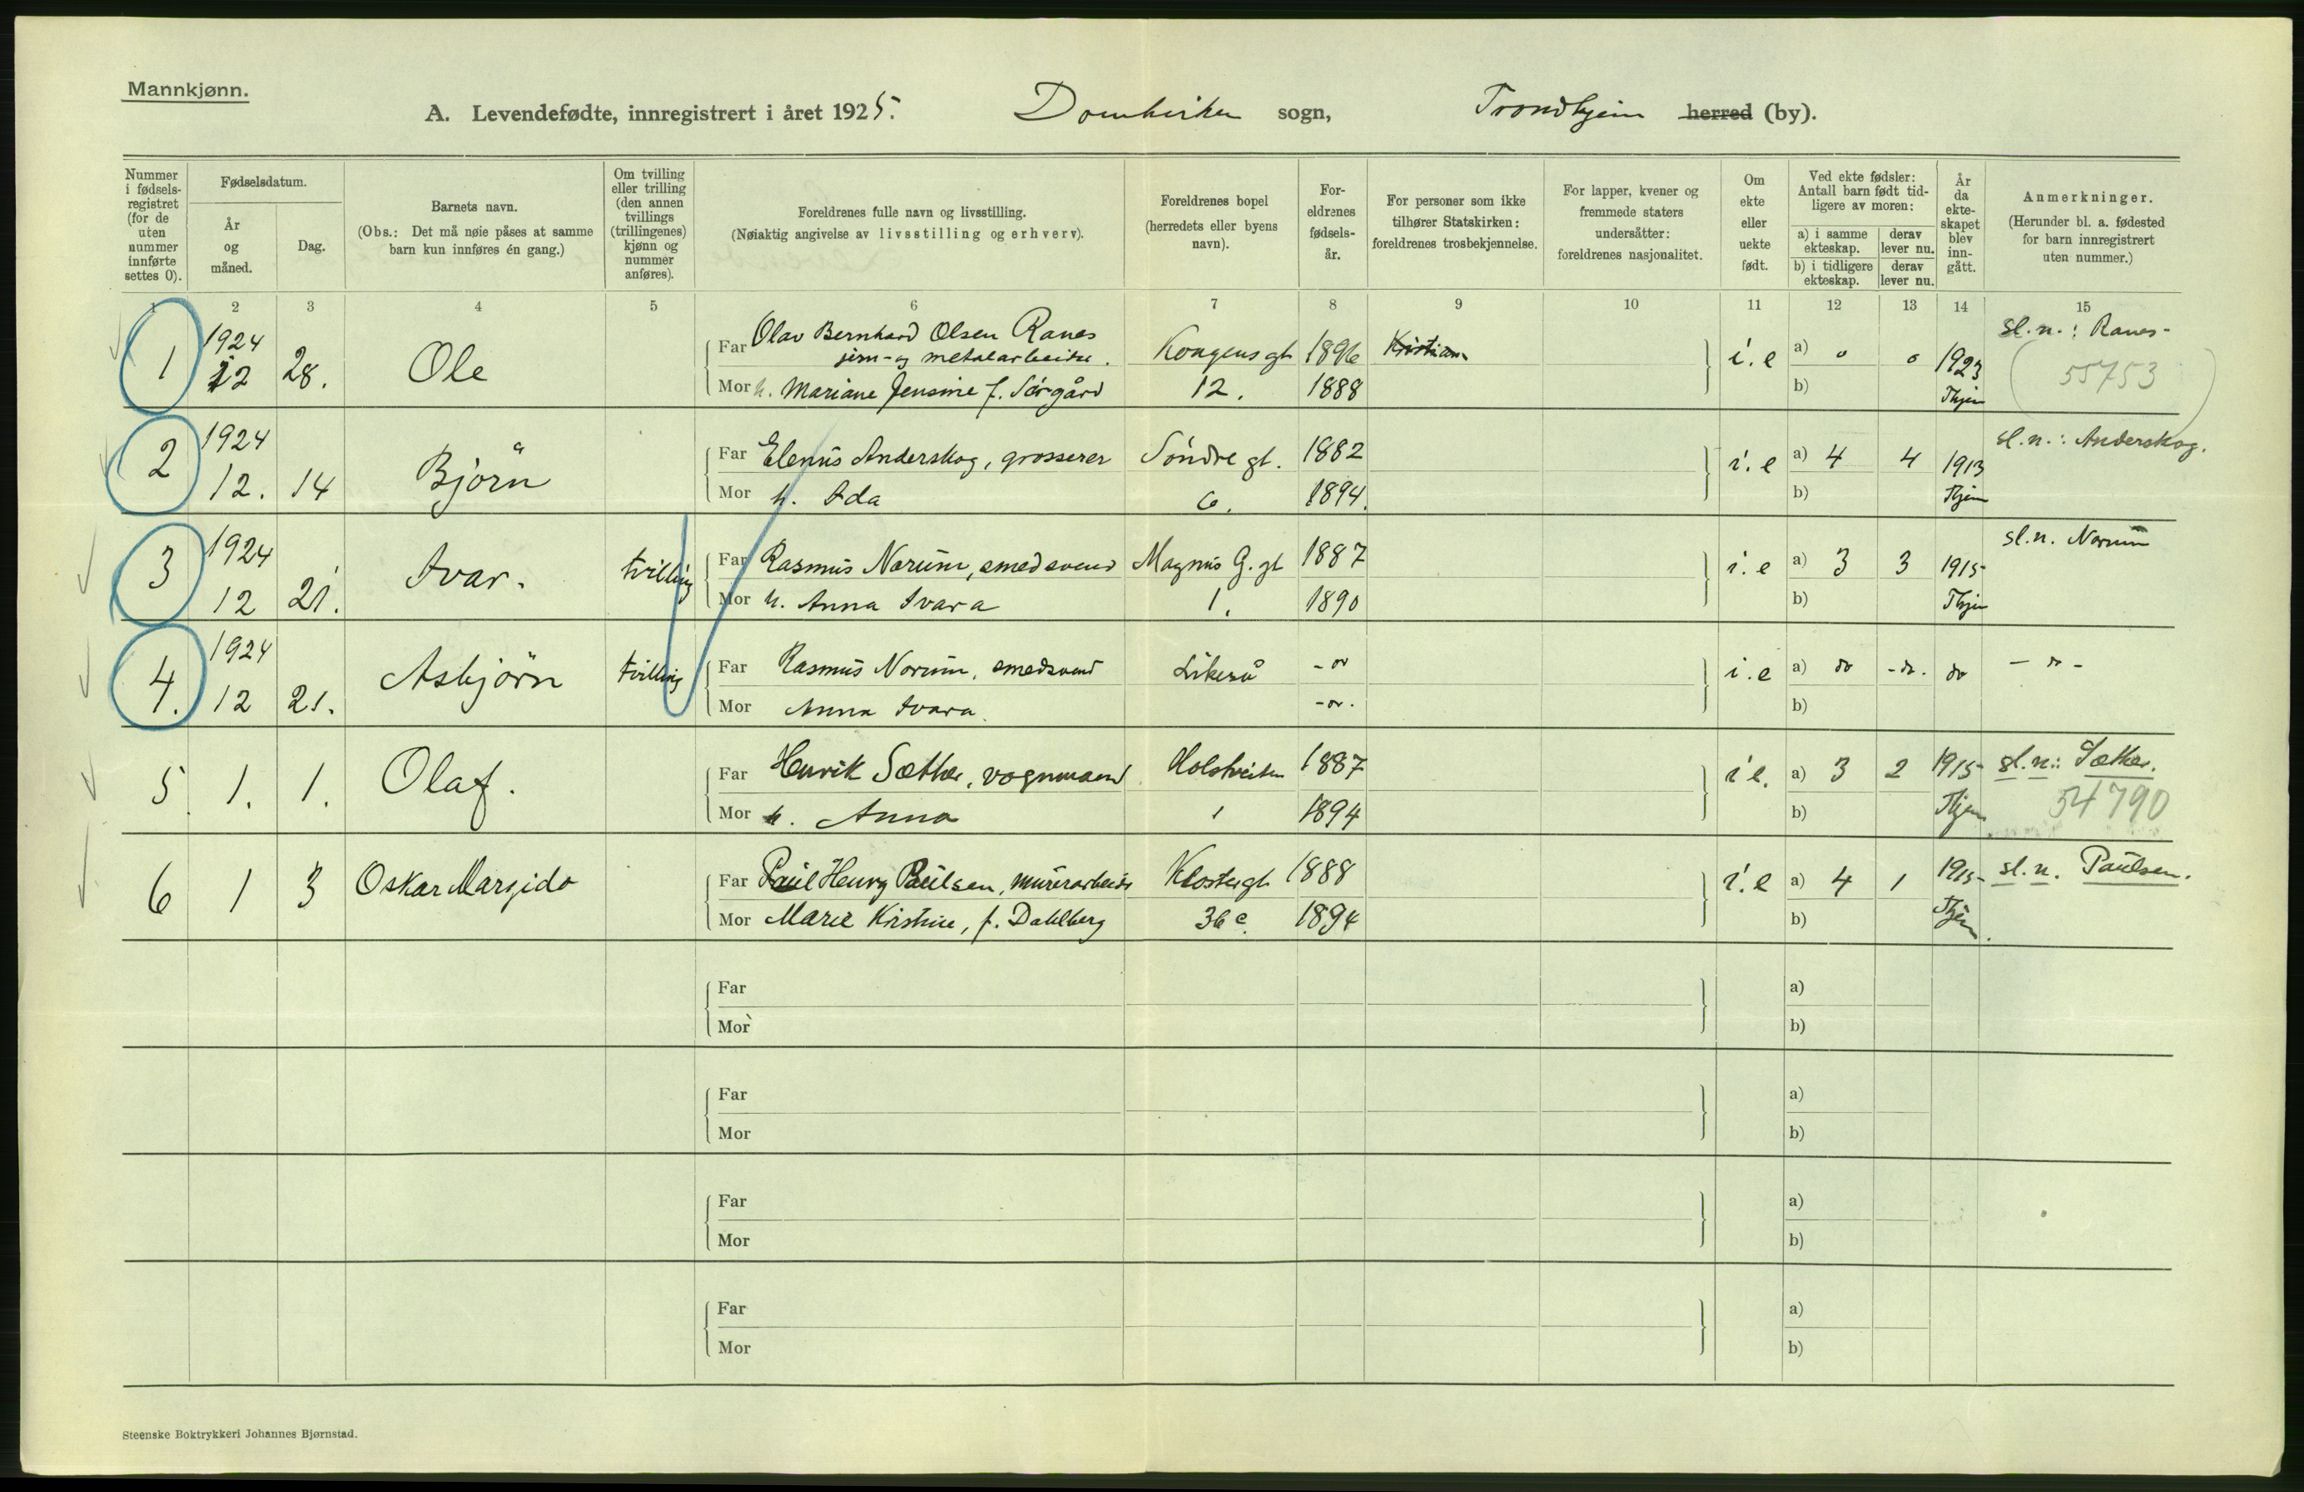 Mannkjønn.
A. Levendefødte, innregistrert i året 1925. Domkirken sogn, Trondhjem herred (by).
Nummer i fødselsregistret (for de uten nummer innførte settes 0).
Fødselsdatum.
År og måned.
Dag.
Barnets navn.
(Obs.: Det må nøie påses at samme barn kun innføres én gang.)
Om tvilling eller trilling (den annen tvillings (trillingenes) kjønn og nummer anføres).
Foreldrenes fulle navn og livsstilling.
(Nøiaktig angivelse av livsstilling og erhverv).
Foreldrenes bopel
(herredets eller byens navn).
Foreldrenes fødselsår.
For personer som ikke tilhører Statskirken: foreldrenes trosbekjennelse.
For lapper, kvener og fremmede staters undersåtter: foreldrenes nasjonalitet.
Om ekte eller uekte født.
Ved ekte fødsler: Antall barn født tidligere av moren:
a) i samme ekteskap. derav lever nu.
b) i tidligere ekteskap. derav lever nu.
År da ekteskapet blev inngått.
Anmerkninger.
(Herunder bl. a. fødested for barn innregistrert uten nummer.)
1 2 3 4 5 6 7 8 9 10 11 12 13 14 15
1 1924 12 28. Ole
Far Olav Bernhard Olsen Ranes jern- og metalarbeider. Kongens gt 1896 Kristian i. e a) 0 0 1923 sl.n.: Ranes
Mor h. Mariane Jensine f. Sørgård 12. 1888 b) Thjem 55753
2 1924 12. 14 Bjørn
Far Elenus Anderskog, grosserer Søndre gt. 1882 i. e a) 4 4 1913 sl.n.: Anderskog.
Mor h. Ida 6. 1894. b) Thjem
3 1924 12 21. Ivar. tvilling
Far Rasmus Norum, smedsvend Magnus G. gt 1887 i. e a) 3 3 1915 sl.n. Norum
Mor h. Anna Ivara 1. 1890 b) Thjem
4. 1924 12 21. Asbjørn tvilling
Far Rasmus Norum, smedsvend Likeså - do i. e a) do - do. do - do -
Mor Anna Ivara. - do. b)
5 1. 1. Olaf.
Far Henrik Sæther, vognmand 1887 i e. a) 3 2 1915 sl.n.: Sæther.
Mor h. Anna 1 1894 b) Thjem 54790
6 1 3 Oskar Margido
Far Paul Henry Paulsen, murerarbeider Klostergt 1888 i. e a) 4 1 1915 sl.n. Paulsen.
Mor Marie Kristine, f. Dahlberg 36 c. 1894 b) Thjem.
Far a)
Mor b)
Far a)
Mor b)
Far a)
Mor b)
Far a)
Mor b)
Steenske Boktrykkeri Johannes Bjørnstad.